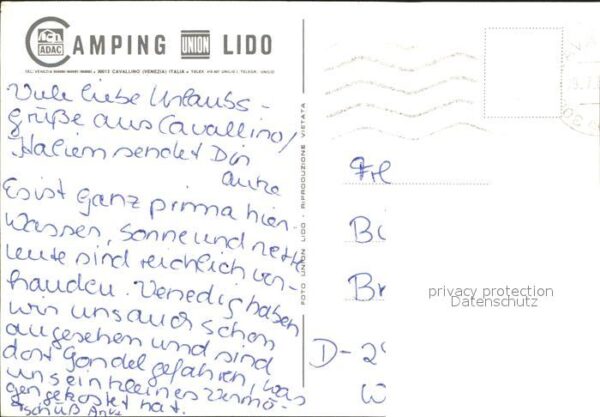 CAMPING UNION LIDO
ADAC
30013 CAVALLINO (VENEZIA) ITALIA
Viele liebe Urlaubs-
grüße aus Cavallino/
Italien sendet Dir
Anke
Es ist ganz prima hier.
Wasser, Sonne und nette
Leute sind reichlich vor-
handen. Venedig haben
wir uns auch schon
angesehen und sind
dort Gondel gefahren, was
uns ein kleines Vermö-
gen gekostet hat.
Tschüß Anke
FOTO UNION LIDO - RIPRODUZIONE VIETATA
Frl
Bi
Br
D-29
W
privacy protection
Datenschutz